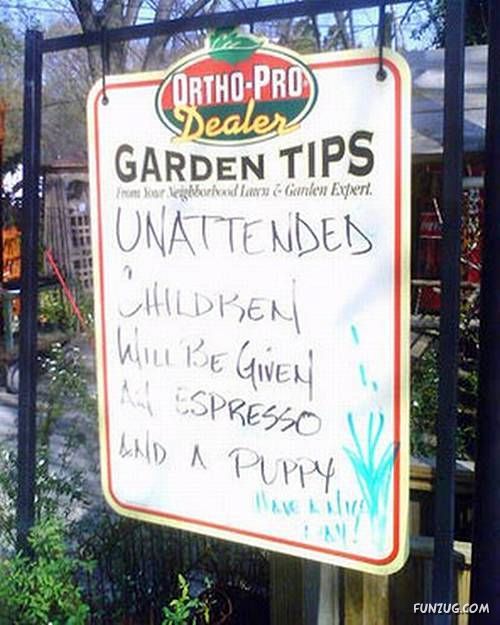 ORTHO-PRO
Dealer
GARDEN TIPS
From Your Neighborhood Lawn & Garden Expert.
UNATTENDED
CHILDREN
WILL BE GIVEN
AN ESPRESSO
AND A PUPPY
HAVE A NICE
DAY!
FUNZUG.COM